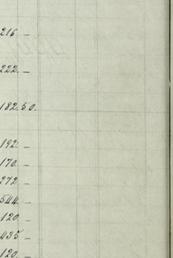 216. _
222. _
182.50.
192. _
170. _
272. _
544. _
120. _
435. _
120. _